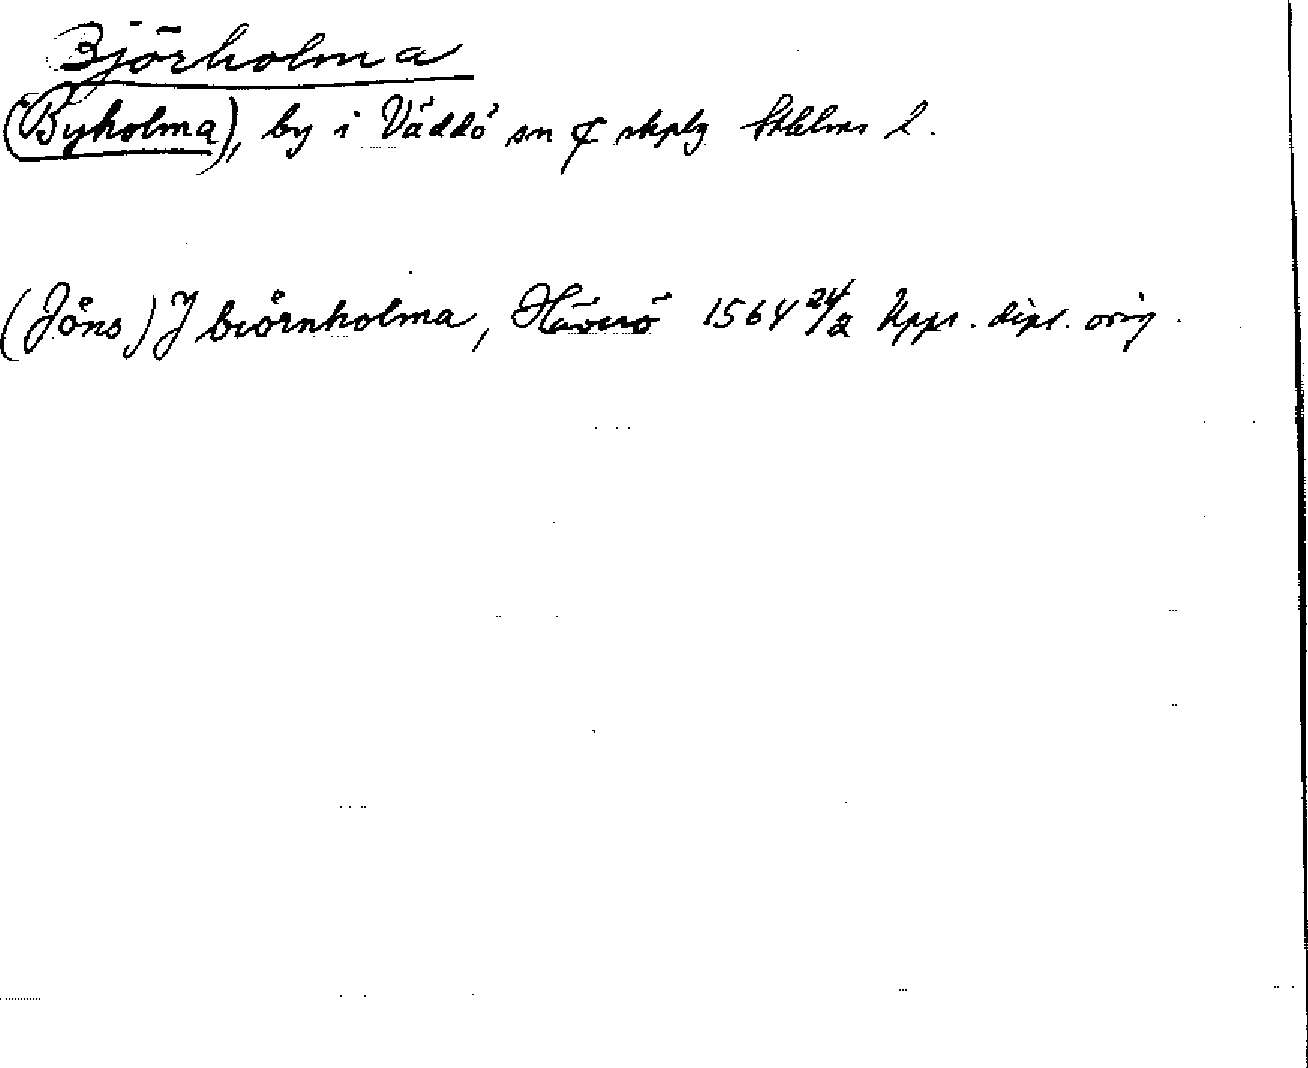 Björholma
(Byholma), by i Väddö sn o skplg Sthlms l.
(Jöns) J biörnholma, Häverö 1564 24/2 Upps. dipl. orig.